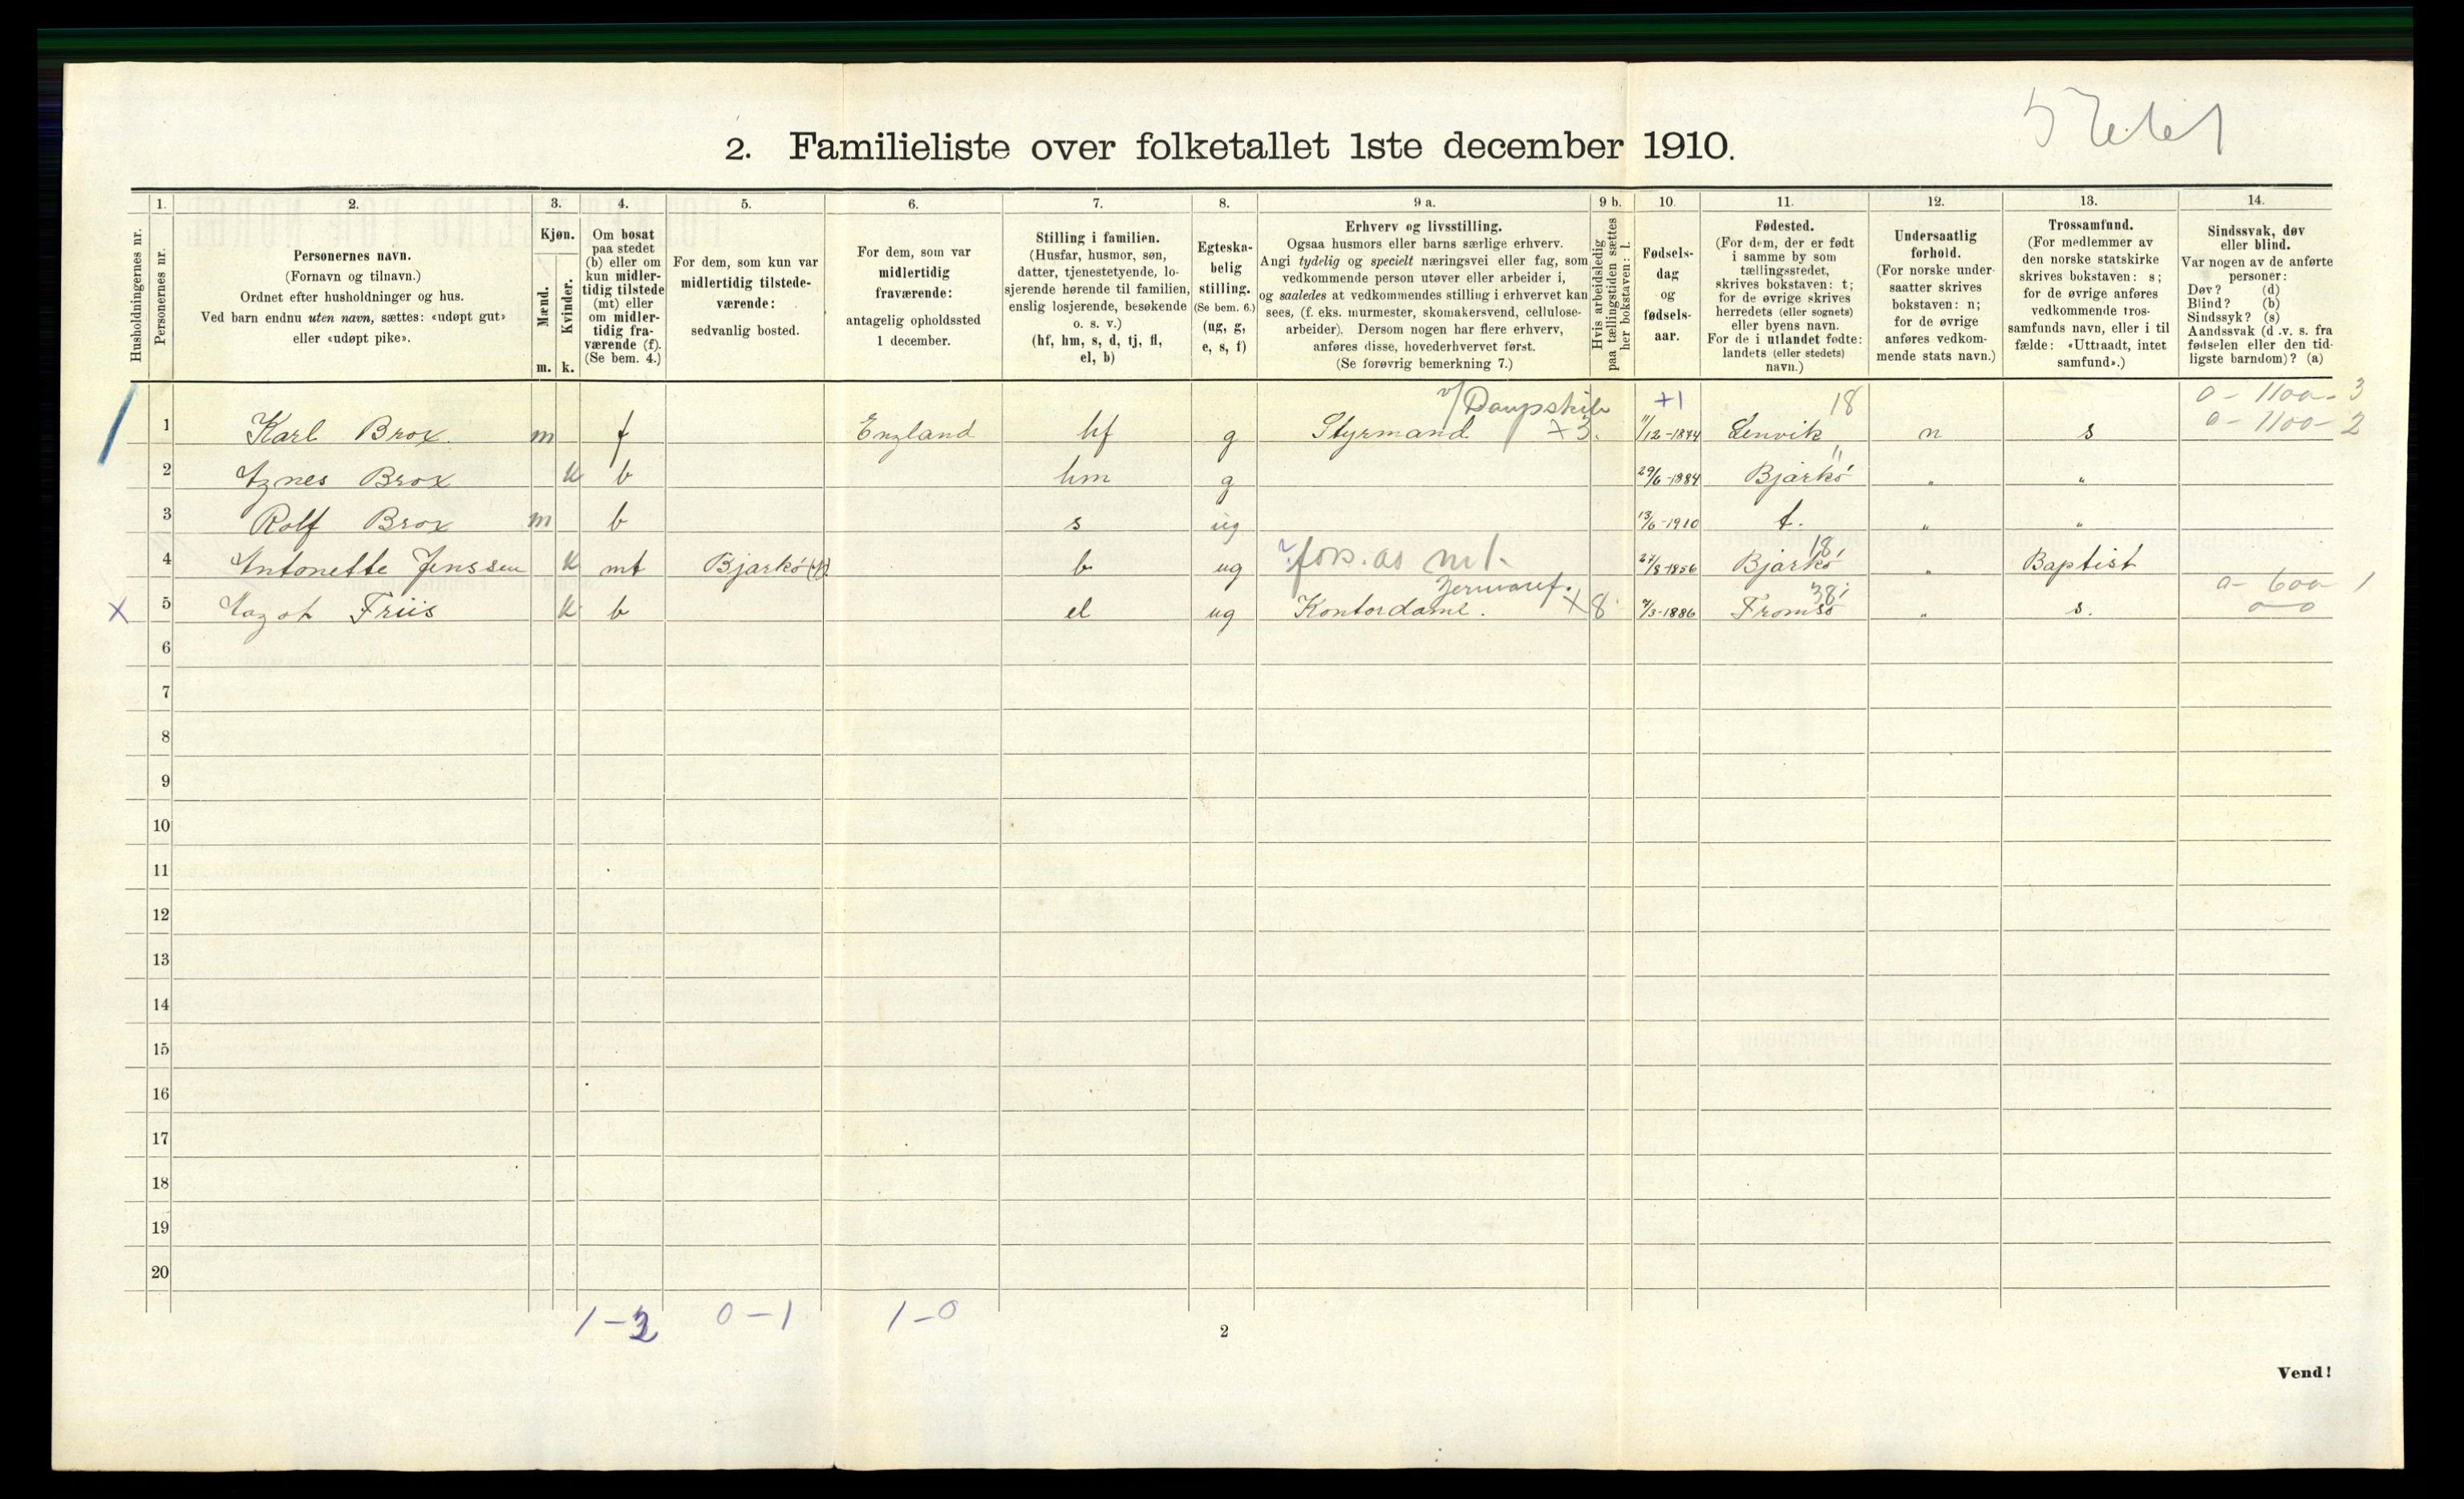 2. Familieliste over folketallet 1ste december 1910.
1. 2. 3. 4. 5. 6. 7. 8. 9 a. 9 b. 10. 11. 12. 13. 14.
Husholdningernes nr.
Personernes nr.
Personernes navn.
(Fornavn og tilnavn.)
Ordnet efter husholdninger og hus.
Ved barn endnu uten navn, sættes: «udøpt gut»
eller «udøpt pike».
Kjøn.
Mænd.
Kvinder.
m. k.
Om bosat
paa stedet
(b) eller om
kun midler-
tidig tilstede
(mt) eller
om midler-
tidig fra-
værende (f).
(Se bem. 4.)
For dem, som kun var
midlertidig tilstede-
værende:
sedvanlig bosted.
For dem, som var
midlertidig
fraværende:
antagelig opholdssted
1 december.
Stilling i familien.
(Husfar, husmor, søn,
datter, tjenestetyende, lo-
sjerende hørende til familien,
enslig losjerende, besøkende
o. s. v.)
(hf, hm, s, d, tj, fl,
el, b)
Egteska-
belig
stilling.
(Se bem. 6.)
(ug, g,
e, s, f)
Erhverv og livsstilling.
Ogsaa husmors eller barns særlige erhverv.
Angi tydelig og specielt næringsvei eller fag, som
vedkommende person utøver eller arbeider i,
og saaledes at vedkommendes stilling i erhvervet kan
sees, (f. eks. murmester, skomakersvend, cellulose-
arbeider). Dersom nogen har flere erhverv,
anføres disse, hovederhvervet først.
(Se forøvrig bemerkning 7.)
Hvis arbeidsledig
paa tællingstiden sættes
her bokstaven: l.
Fødsels-
dag
og
fødsels-
aar.
Fødested.
(For dem, der er født
i samme by som
tællingsstedet,
skrives bokstaven: t;
for de øvrige skrives
herredets (eller sognets)
eller byens navn.
For de i utlandet fødte:
landets (eller stedets)
navn.)
Undersaatlig
forhold.
(For norske under-
saatter skrives
bokstaven: n;
for de øvrige
anføres vedkom-
mende stats navn.)
Trossamfund.
(For medlemmer av
den norske statskirke
skrives bokstaven: s;
for de øvrige anføres
vedkommende tros-
samfunds navn, eller i til
fælde: «Uttraadt, intet
samfund».)
Sindssvak, døv
eller blind.
Var nogen av de anførte
personer:
Døv? (d)
Blind? (b)
Sindssyk? (s)
Aandssvak (d .v. s. fra
fødselen eller den tid-
ligste barndom)? (a)
v/ Dampskib +1 18 0 - 1100 - 3
1 Karl Brox m f England hf g Styrmand +3. 11/12-1844 Lenvik n s 0 - 1100 - 2
2 Agnes Brox k b hm g 29/6-1884 Bjarkö " "
3 Rolf Brox m b s ug 13/6-1910 t. " "
18
4 Antonette Jenssen k mt Bjarkö b ug ? fors. as mt. 27/8-1856 Bjarkö " Baptist
38 0 - 600 1
X 5 Magot Friis k b el ug Kontordame. +8 7/3-1886 Tromsö " s. 0 0
6
7
8
9
10
11
12
13
14
15
16
17
18
19
20
1-3 0-1 1-0
2
Vend!